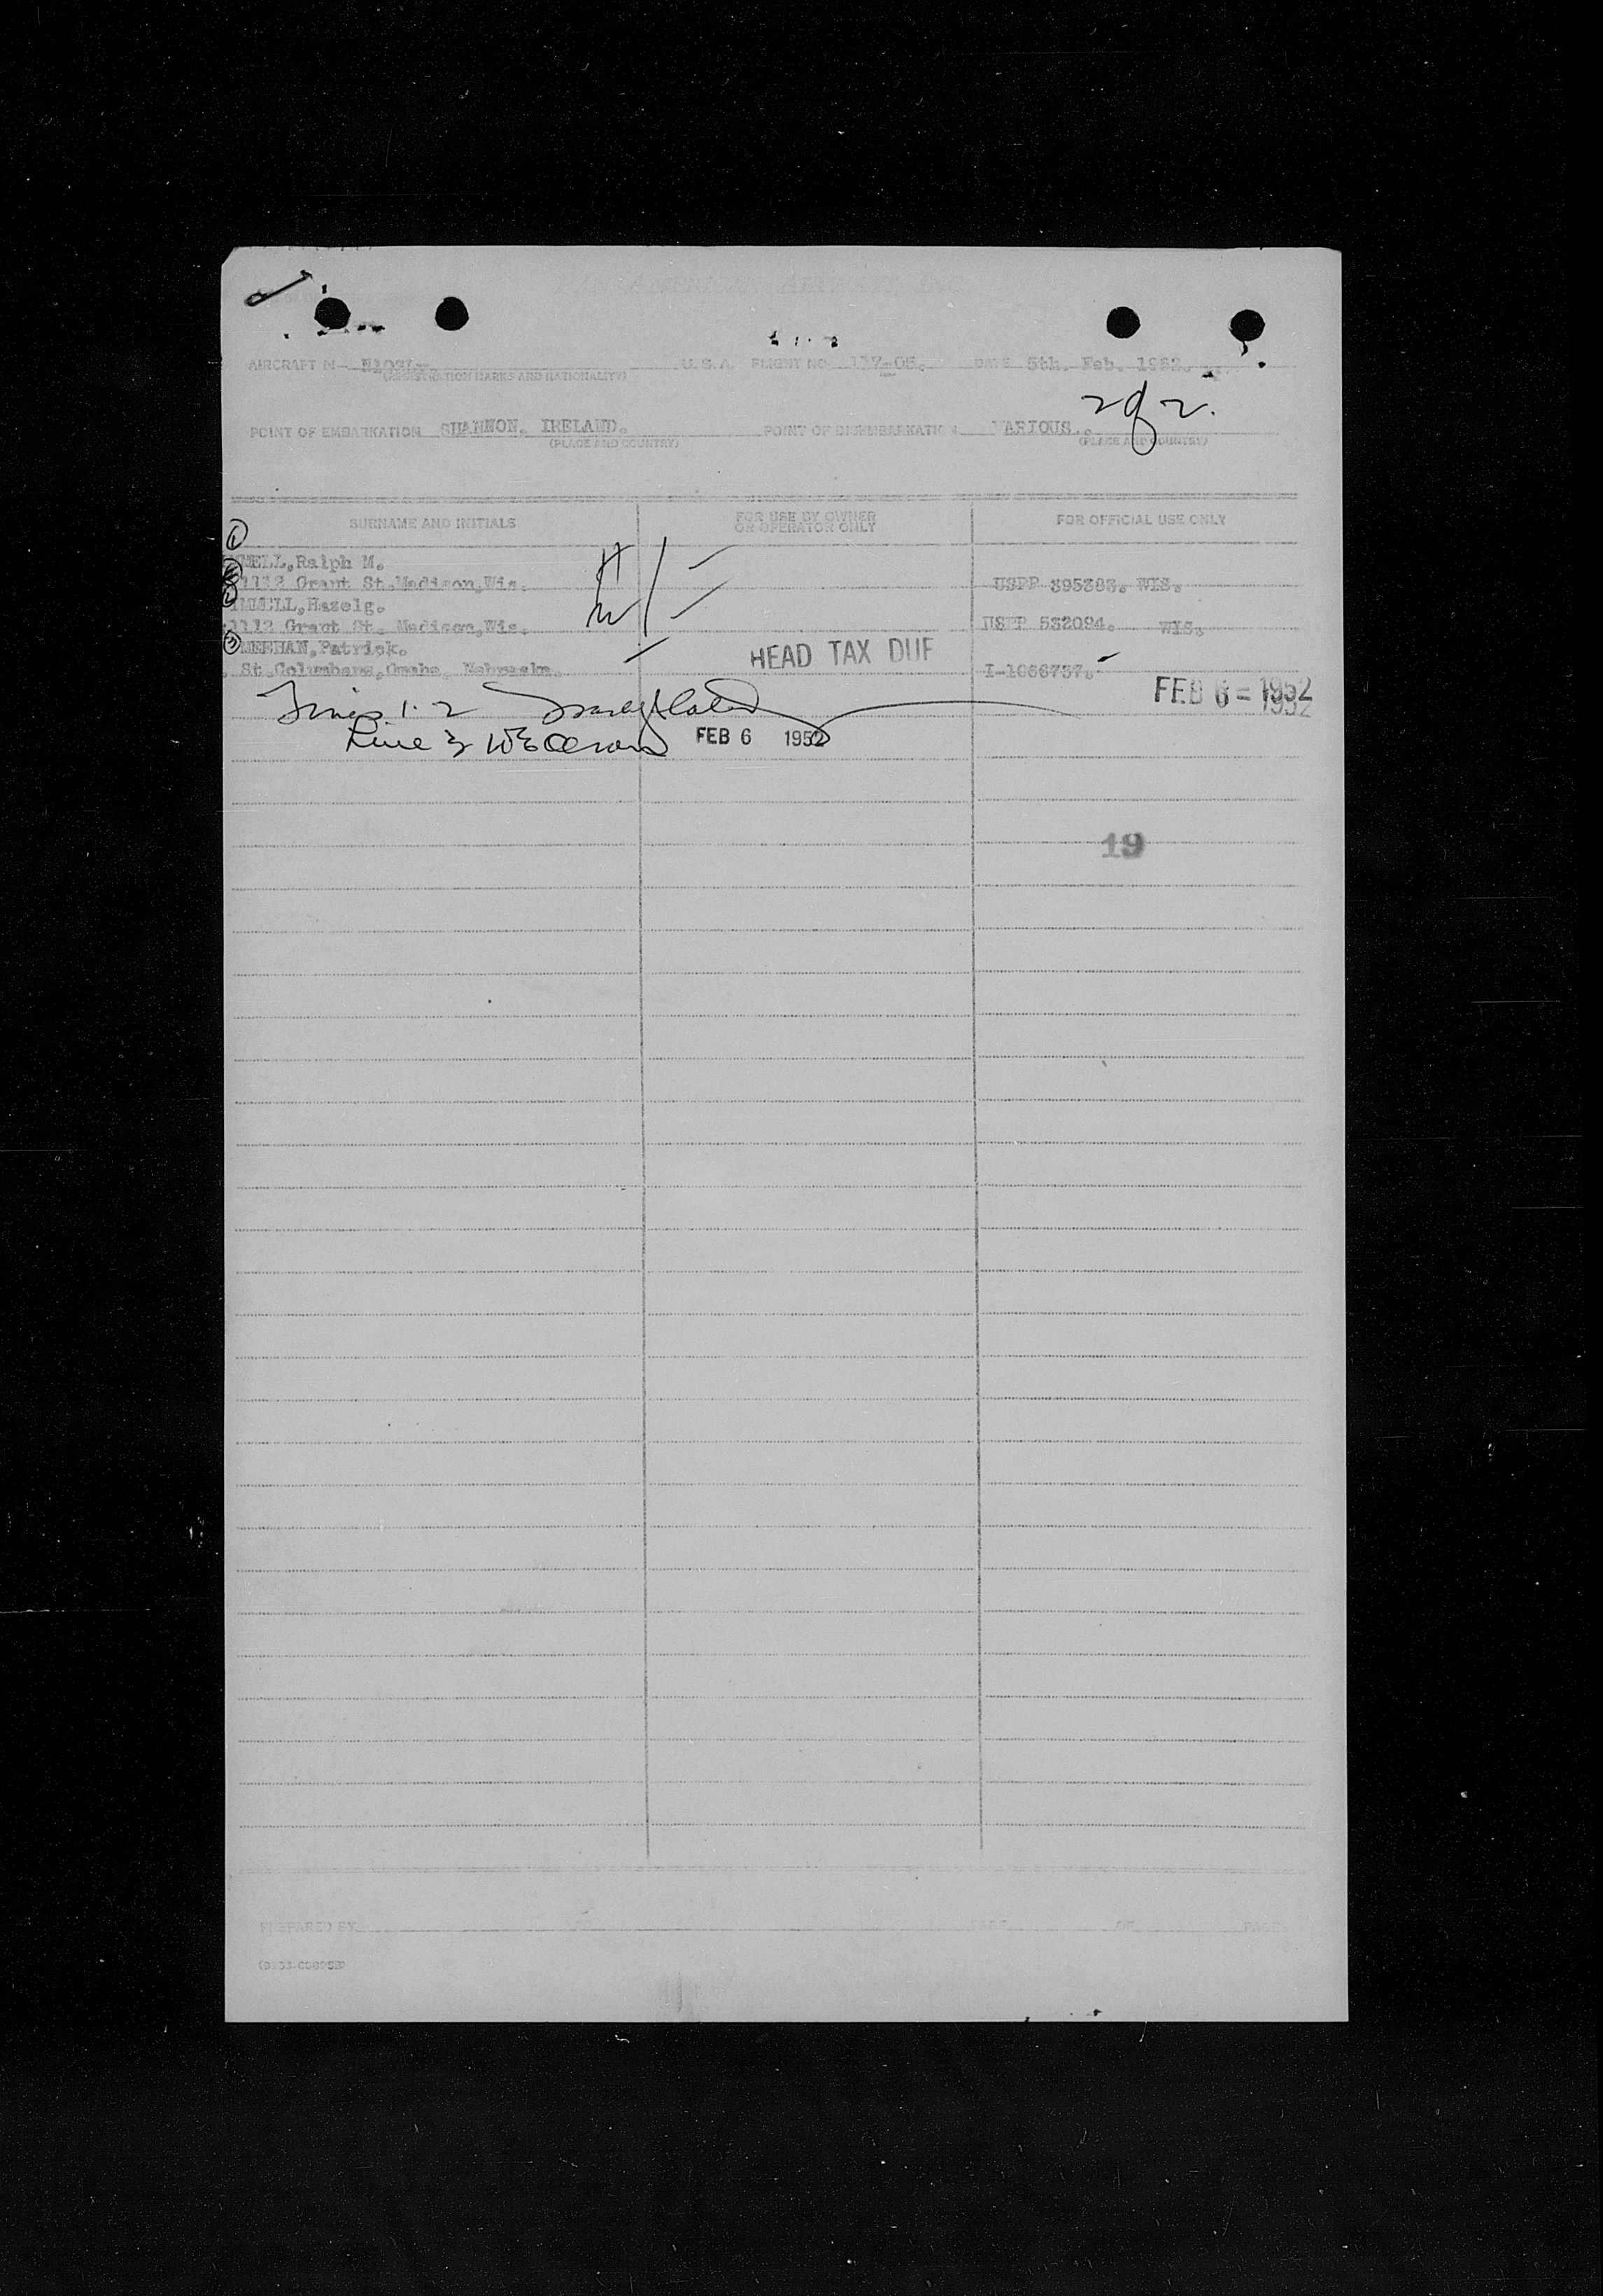 PAN AMERICAN AIRWAYS, INC.
AIRCRAFT N- U.S.A. FLIGHT NO. 117-05. DATE 5th. Feb. 1952.
(REGISTRATION MARKS AND NATIONALITY)
2 of 2.
POINT OF EMBARKATION SHANNON. IRELAND. POINT OF DISEMBARKATION VARIOUS.
(PLACE AND COUNTRY) (PLACE AND COUNTRY)
SURNAME AND INITIALS FOR USE BY OWNER OR OPERATOR ONLY FOR OFFICIAL USE ONLY
1
Ralph M.
1112 Grant St. Madison, Wis. USPP 395383. WIS.
2
Hazelg.
1112 Grant St. Madison, Wis. USPP 532094. WIS.
3
MEEHAN, Patrick. HEAD TAX DUE
St. Columbans, Omaha, Nebraska. I-1066757.
FEB 6 - 1952
Lines 1-2
Line 3 FEB 6 1952
19
PREPARED BY PAGE OF PAGES